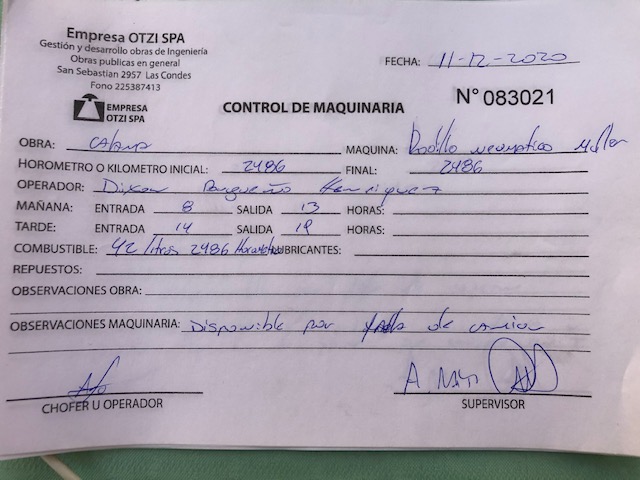 Empresa OTZI SPA
Gestión y desarrollo obras de Ingeniería
Obras publicas en general
San Sebastian 2957 Las Condes
Fono 225387413
EMPRESA
OTZI SPA
FECHA: 11-12-2020
CONTROL DE MAQUINARIA
N° 083021
OBRA: MAQUINA: Rodillo neumatico
HOROMETRO O KILOMETRO INICIAL: 2486 FINAL: 2486
OPERADOR:
MAÑANA: ENTRADA 8 SALIDA 13 HORAS:
TARDE: ENTRADA 14 SALIDA 19 HORAS:
COMBUSTIBLE: 42 litros 2486 LUBRICANTES:
REPUESTOS:
OBSERVACIONES OBRA:
OBSERVACIONES MAQUINARIA: Disponible por de
CHOFER U OPERADOR
SUPERVISOR